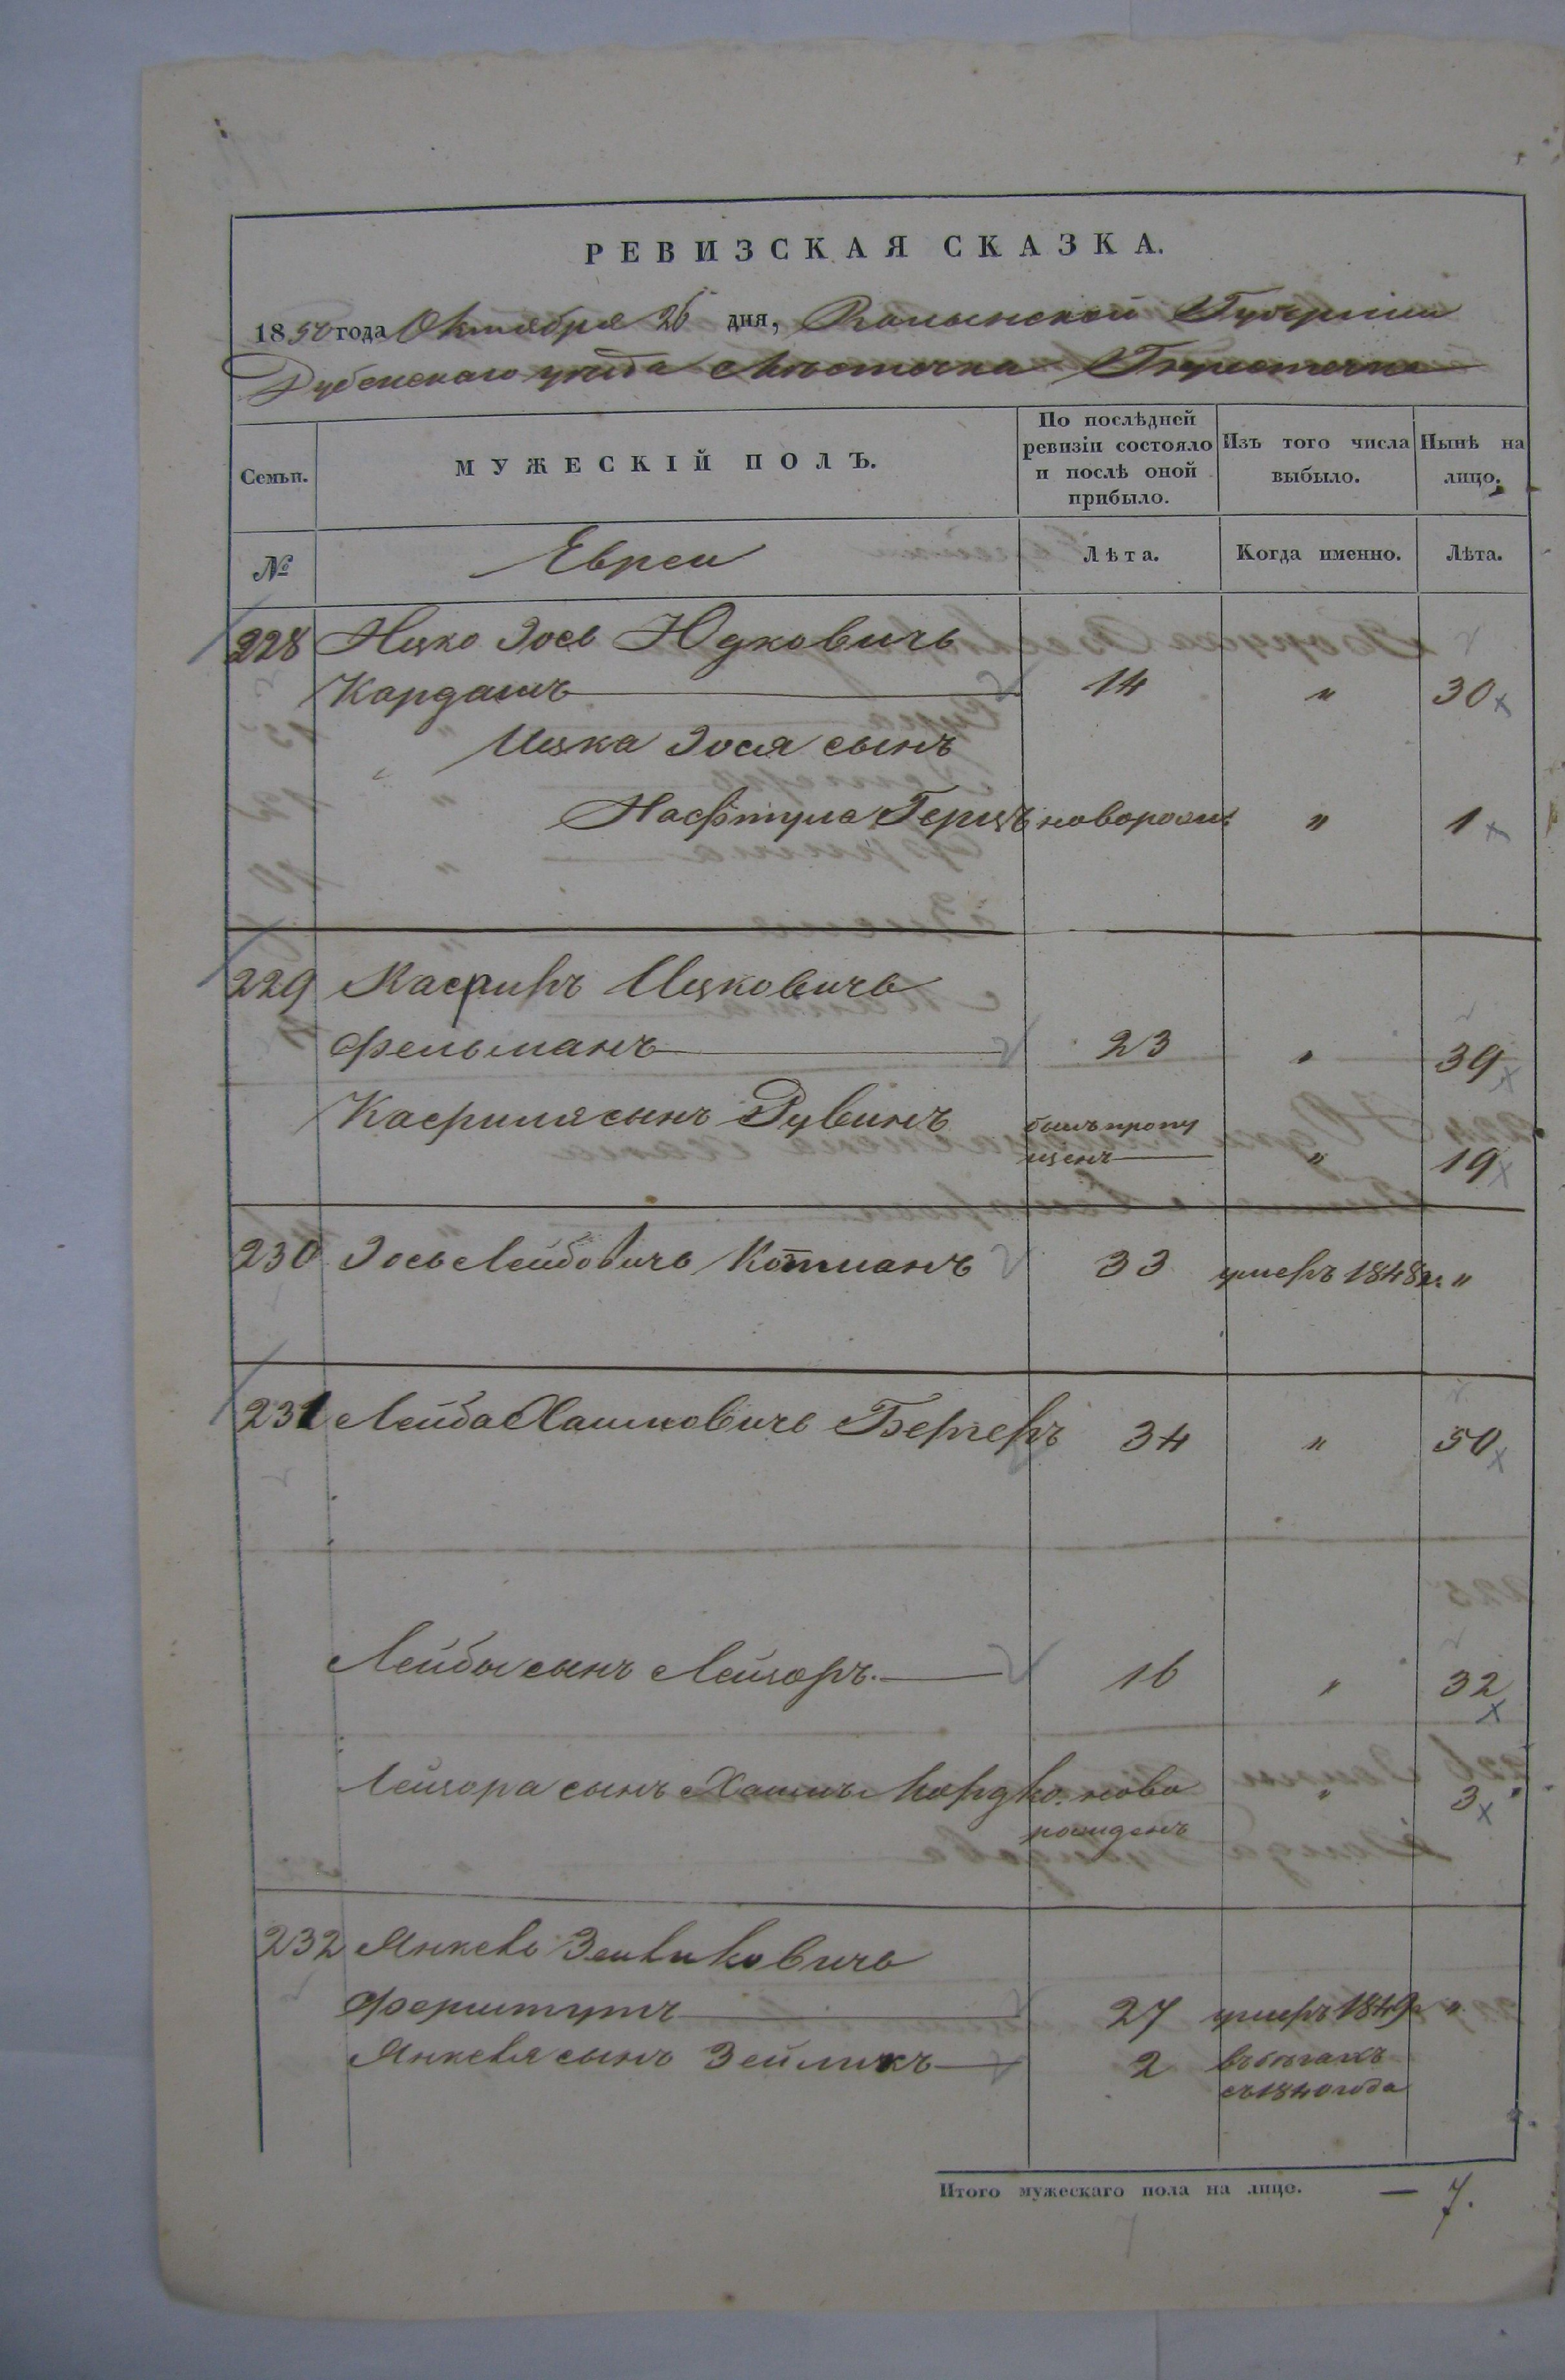 РЕВИЗСКАЯ СКАЗКА.
1850 года Октября 26 дня, Волынской Губернiи
Дубенскаго уезда Местечка Берестечка
Семьи.
МУЖЕСКІЙ ПОЛЪ.
По послѣдней ревизіи состояло и послѣ оной прибыло.
Изъ того числа выбыло.
Нынѣ на лицо.
№
Евреи
Лѣта.
Когда именно.
Лѣта.
228 Ицко Iось Юдковичь
Кардашъ 14 " 30
Ицка Iося сынъ
Нафтула Герцъ новорож: " 1
229 Касрилъ Ицковичь
Фельманъ 23 " 39
Касриля сынъ Рувинъ был пропу
щенъ " 19
230 Iось Лейбовичь Котманъ 33 умеръ 1848 г. "
231 Лейба Хаимовичь Бергеръ 34 " 50
Лейбы сынъ Лейзоръ. 16 " 32
Лейзора сынъ Хаимъ Мордко. ново
рожденъ " 3
232 Янкель Зейликовичь
27 умеръ 1849 г "
Янкеля сынъ Зейликъ 2 въ бегахъ
съ 1840 года
Итого мужескаго пола на лице. — 7.